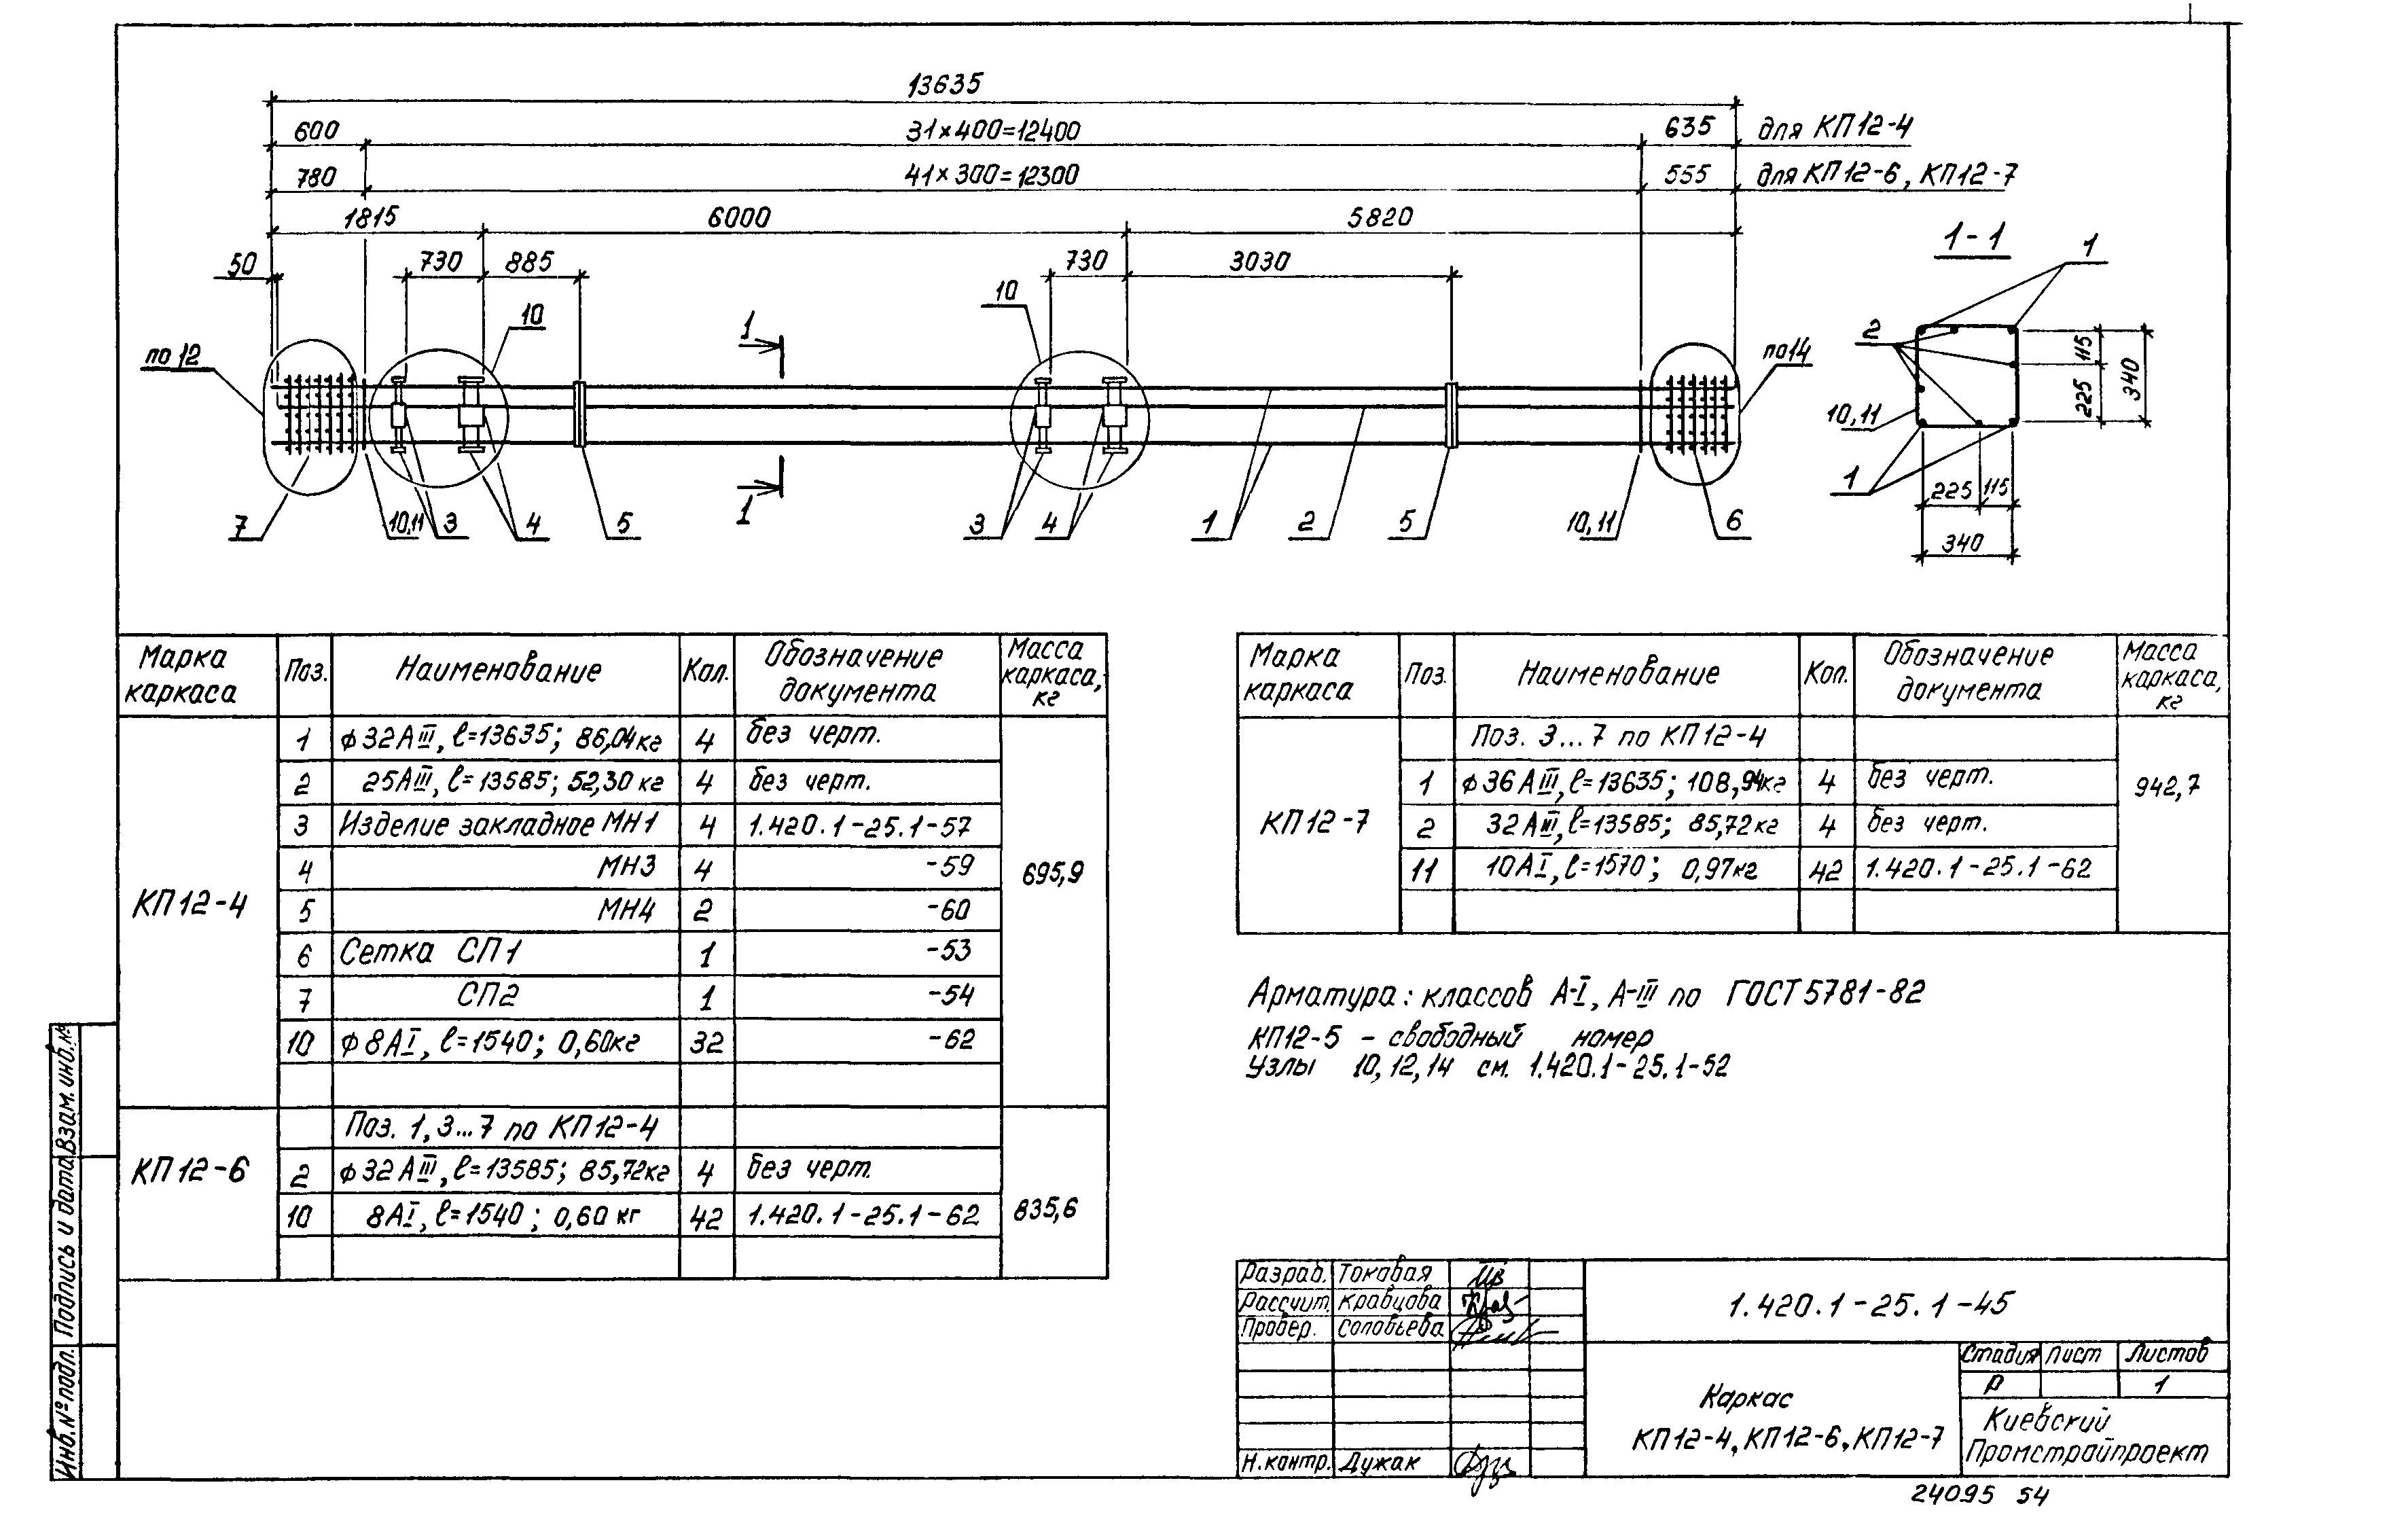 13635
600 31×400=12400 635 для КП12-4
780 41×300=12300 555 для КП12-6, КП12-7
1815 6000 5820
50 730 885 730 3030
по 12 10 1 10 по14
7 10,11 3 4 5 1 3 4 1 2 5 10,11 6
1-1
1
2
10,11
1
115
225
340
225 115
340
Марка каркаса Поз. Наименование Кол. Обозначение документа Масса каркаса, кг
КП12-4 695,9
1 ϕ32АIII, ℓ=13635; 86,04кг 4 без черт.
2 25АIII, ℓ=13585; 52,30 кг 4 без черт.
3 Изделие закладное МН1 4 1.420.1-25.1-57
4 МН3 4 -59
5 МН4 2 -60
6 Сетка СП1 1 -53
7 СП2 1 -54
10 ϕ8АI, ℓ=1540; 0,60кг 32 -62
КП12-6 835,6
Поз. 1, 3...7 по КП12-4
2 ϕ32АIII, ℓ=13585; 85,72кг 4 без черт.
10 8АI, ℓ=1540; 0,60 кг 42 1.420.1-25.1-62
Марка каркаса Поз. Наименование Кол. Обозначение документа Масса каркаса, кг
КП12-7 942,7
Поз. 3...7 по КП12-4
1 ϕ36АIII, ℓ=13635; 108,94кг 4 без черт.
2 32АIII, ℓ=13585; 85,72кг 4 без черт.
11 10АI, ℓ=1570; 0,97кг 42 1.420.1-25.1-62
Арматура: классов А-I, А-III по ГОСТ5781-82
КП12-5 - свободный номер
Узлы 10, 12, 14 см. 1.420.1-25.1-52
Разраб. Токовая
Рассчит. Кравцова
Провер. Соловьева
Н.контр. Дужак
1.420.1-25.1-45
Каркас
КП12-4, КП12-6, КП12-7
Стадия Лист Листов
Р 1
Киевский
Промстройпроект
24095 54
Инв.№подл. Подпись и дата Взам. инв.№